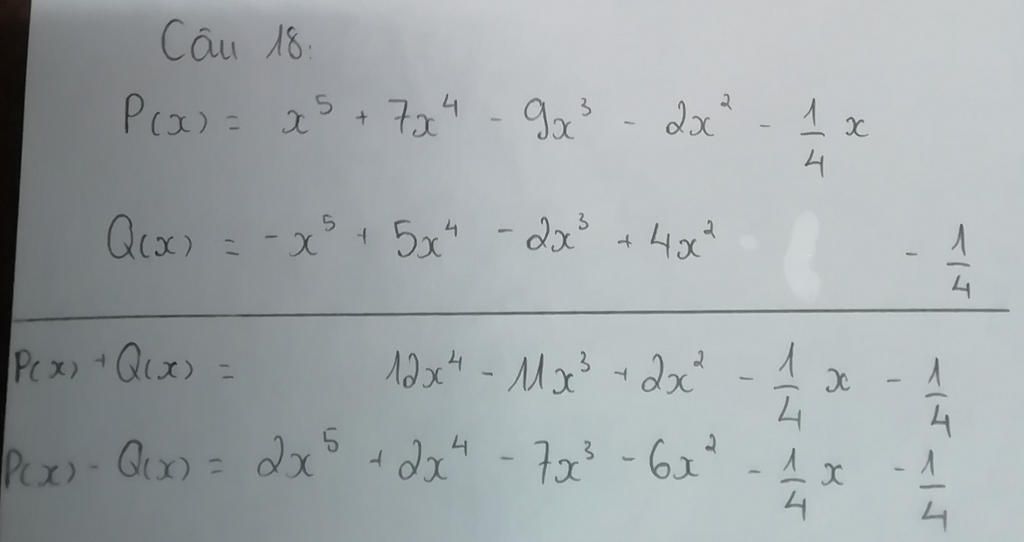 Câu 18:
P(x) = x⁵ + 7x⁴ - 9x³ - 2x² - 1/4 x
Q(x) = -x⁵ + 5x⁴ - 2x³ + 4x² - 1/4
P(x) + Q(x) = 12x⁴ - 11x³ + 2x² - 1/4 x - 1/4
P(x) - Q(x) = 2x⁵ + 2x⁴ - 7x³ - 6x² - 1/4 x - 1/4